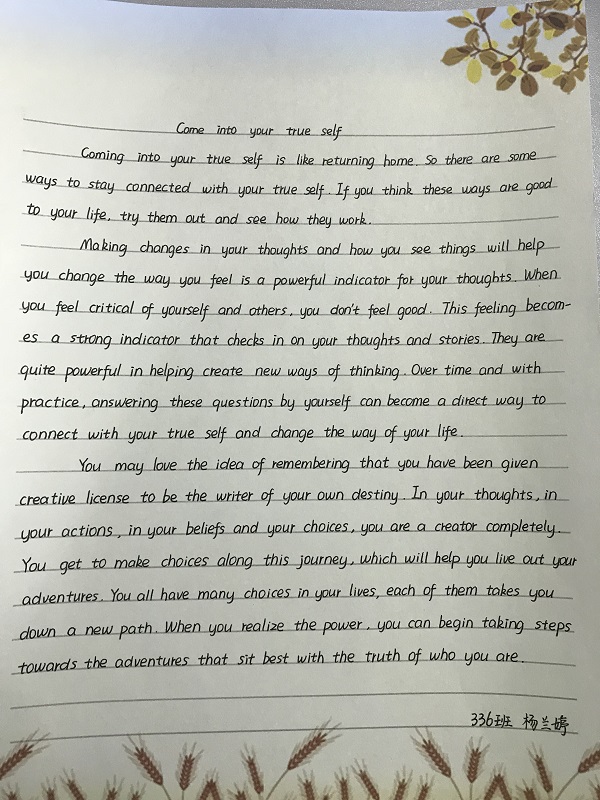 Come into your true self
Coming into your true self is like returning home. So there are some
ways to stay connected with your true self. If you think these ways are good
to your life, try them out and see how they work.
Making changes in your thoughts and how you see things will help
you change the way you feel is a powerful indicator for your thoughts. When
you feel critical of yourself and others, you don't feel good. This feeling becom-
es a strong indicator that checks in on your thoughts and stories. They are
quite powerful in helping create new ways of thinking. Over time and with
practice, answering these questions by yourself can become a direct way to
connect with your true self and change the way of your life.
You may love the idea of remembering that you have been given
creative license to be the writer of your own destiny. In your thoughts, in
your actions, in your beliefs and your choices, you are a creator completely.
You get to make choices along this journey, which will help you live out your
adventures. You all have many choices in your lives, each of them takes you
down a new path. When you realize the power, you can begin taking steps
towards the adventures that sit best with the truth of who you are.
336班 杨兰婷